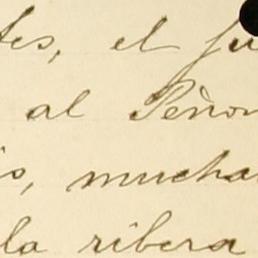 tes, el fu
al Peñon
s, mucha
la ribera